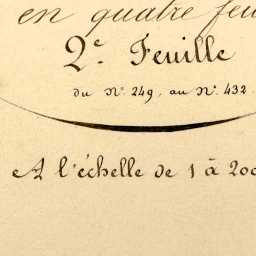 en quatre feu
2e. Feuille
du No. 249, au No. 432.
A l'échelle de 1 à 200